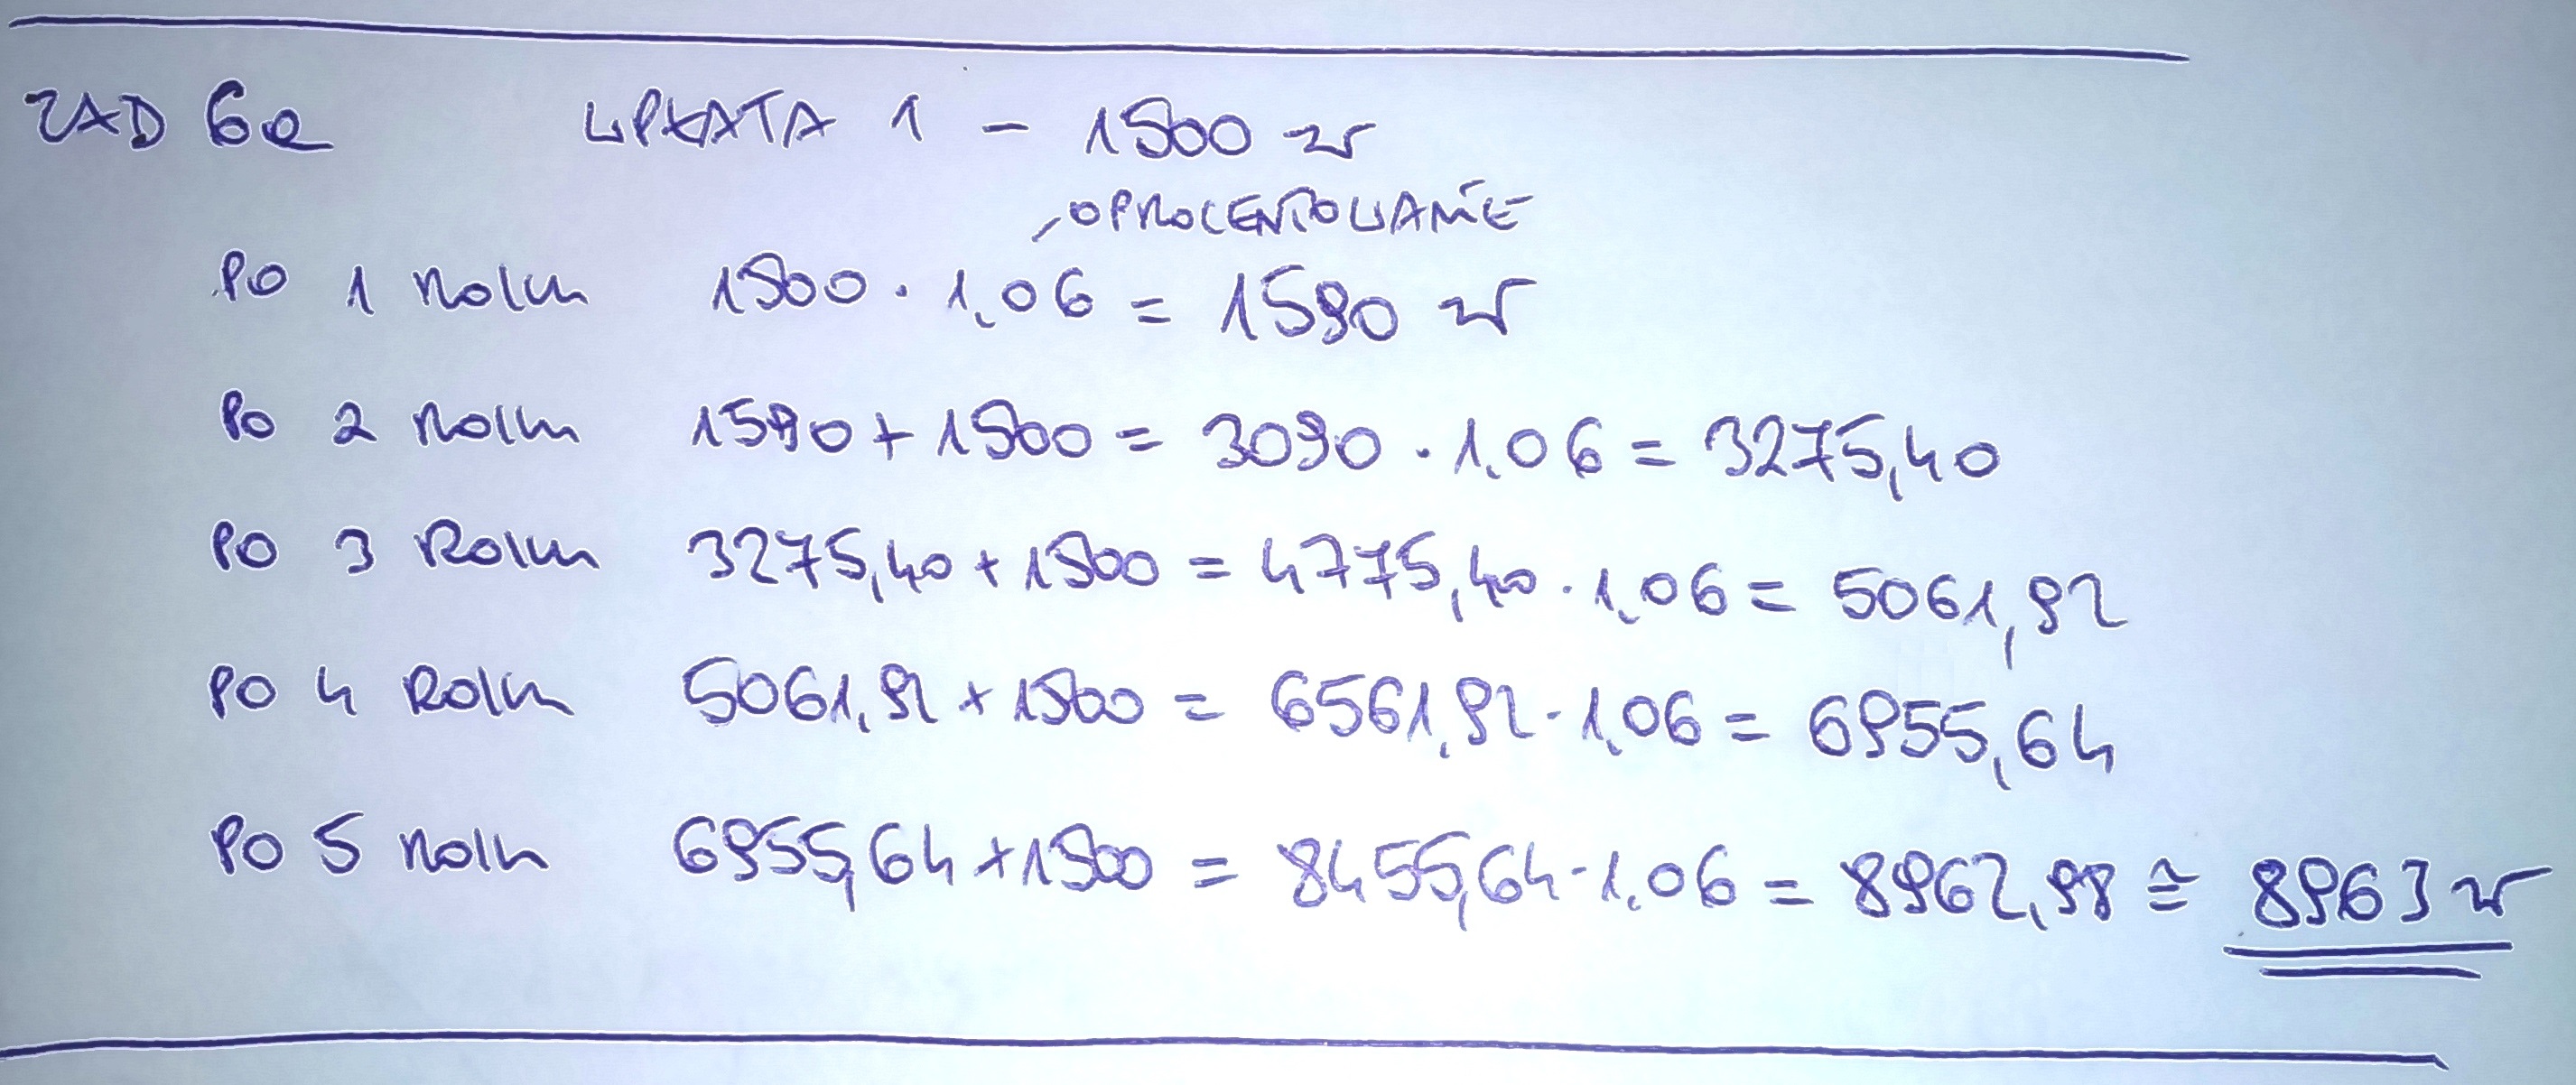 ZAD 6a WPŁATA 1 – 1500 zł
OPROCENTOWANIE
PO 1 ROKU 1500 · 1,06 = 1590 zł
PO 2 ROKU 1590 + 1500 = 3090 · 1,06 = 3275,40
PO 3 ROKU 3275,40 + 1500 = 4775,40 · 1,06 = 5061,92
PO 4 ROKU 5061,92 + 1500 = 6561,92 · 1,06 = 6955,64
PO 5 ROKU 6955,64 + 1500 = 8455,64 · 1,06 = 8962,98 ≅ 8963 zł